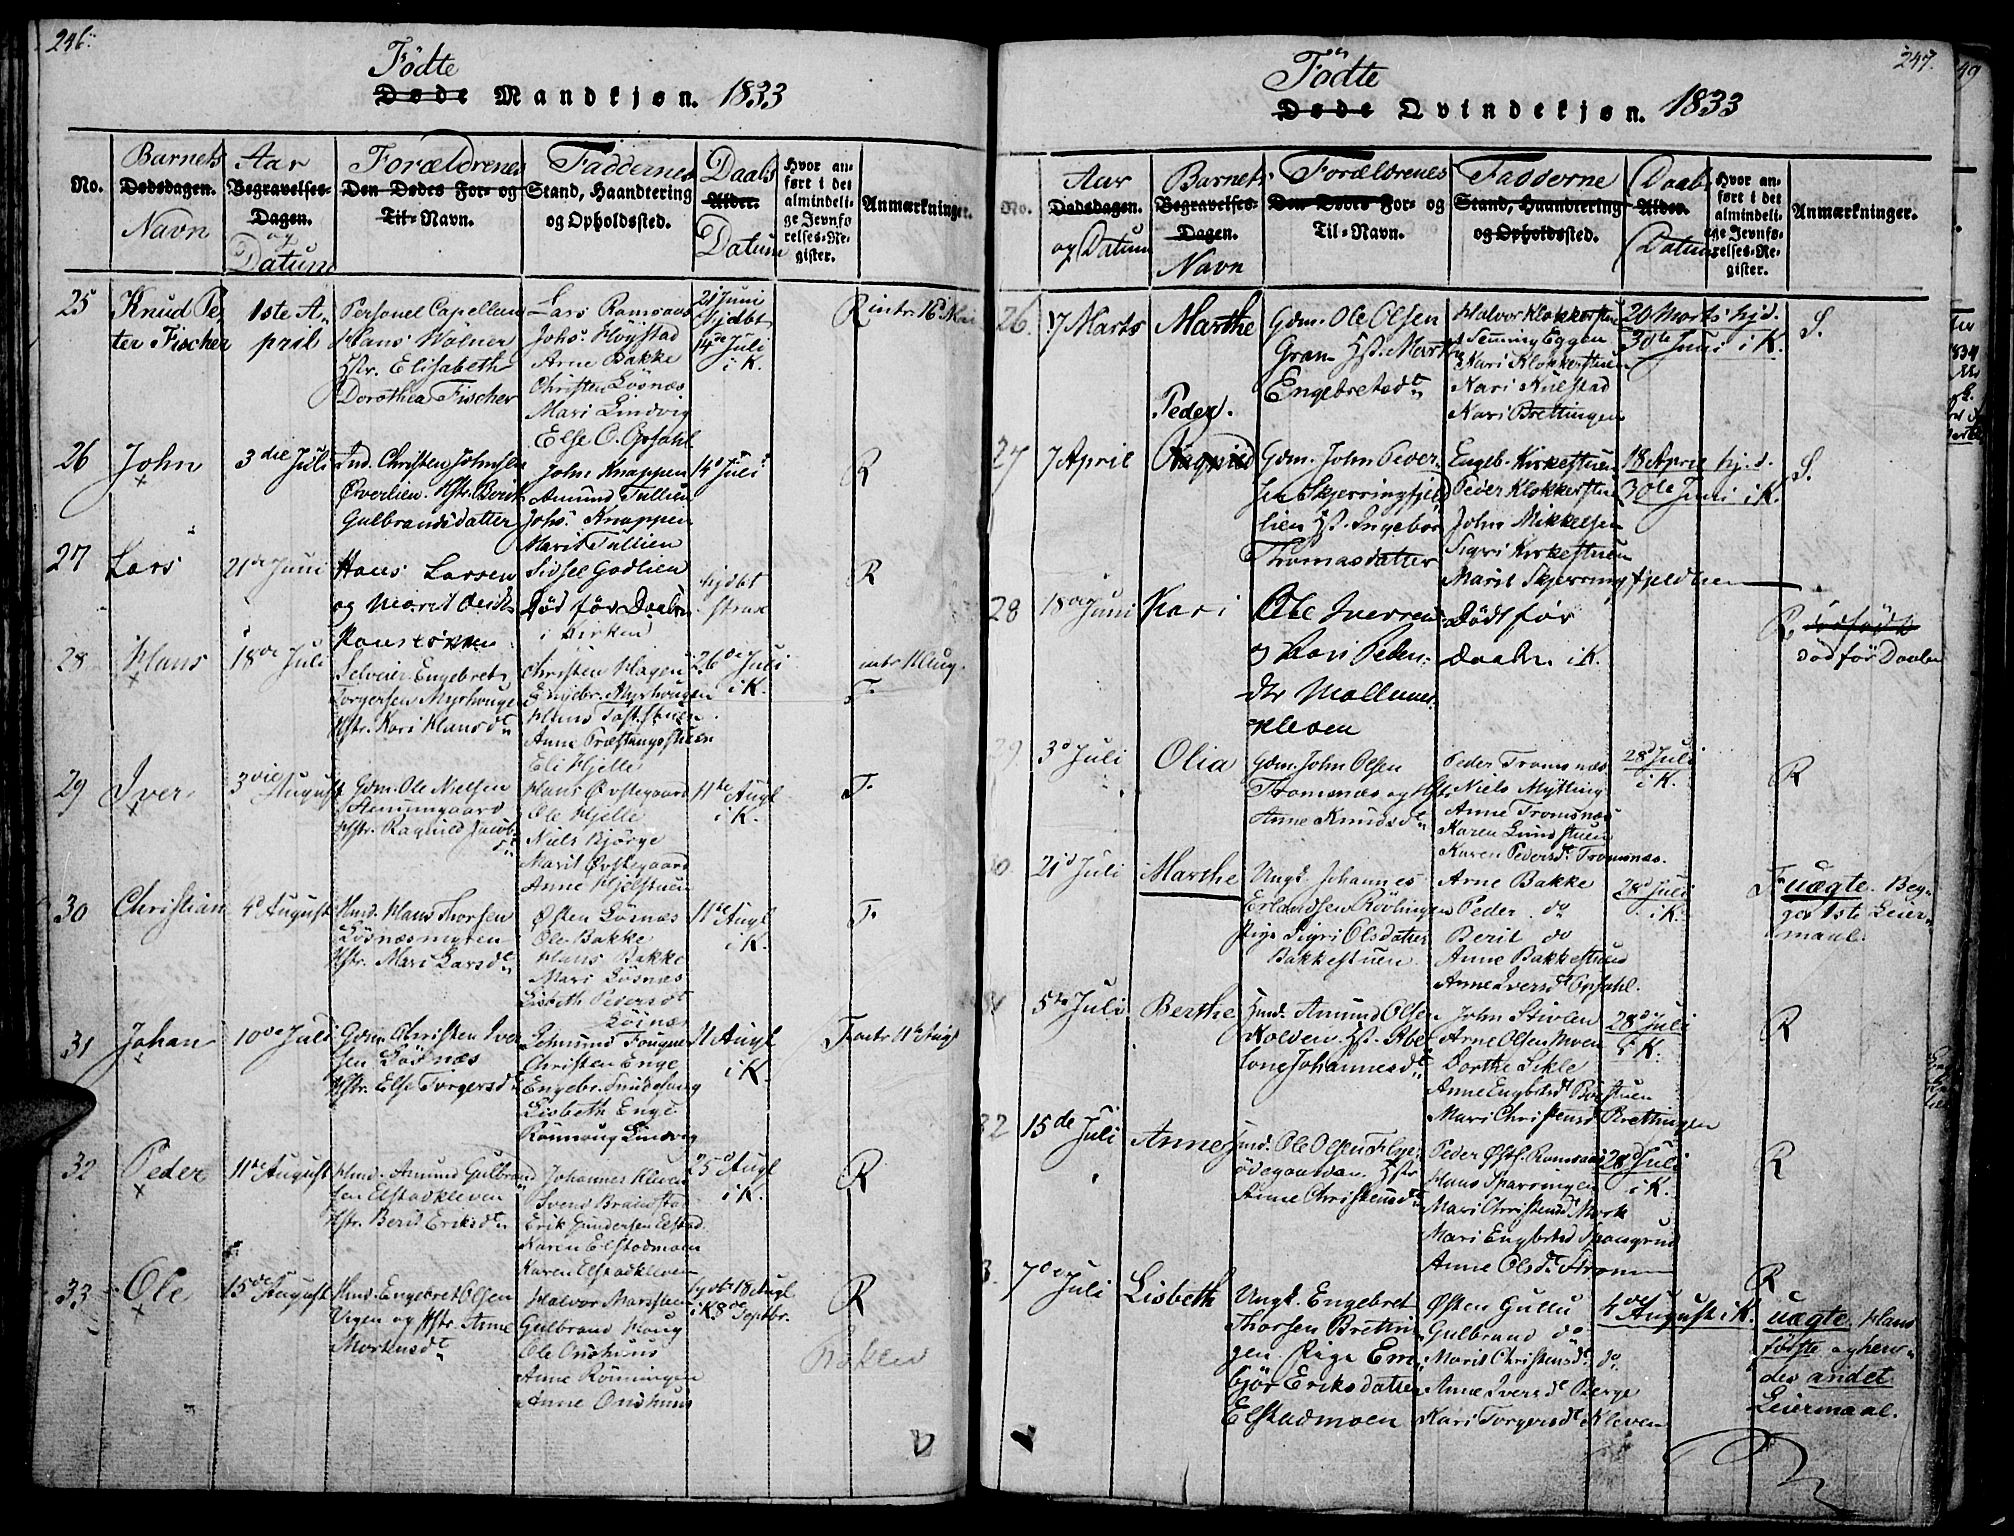 246.
Födte
Døde Mandkjøn. 1833
No.
Barnets
Dødsdagen.
Navn
Aar
Begravelses-
Dagen.
og
Datum
Forældrenes
Den Dødes For- og
Til-Navn.
Faddernes
Stand, Haandtering
og Opholdssted.
Daabs
Alder.
Datum
Hvor an-
ført i det
almindeli-
ge Jevnfø-
relses-Re-
gister.
Anmærkninger.
25
Knud Pe
ter Fischer
1ste A-
pril
Personel Capellan
Hans Wolner
Hstr. Elisabeth
Dorothea Fischer
Lars Romsaas
Johs. Höystad
Arne Bakke
Christen Lösnæs
Mari Lindvig
Else O. Opsahl
21 Juni
hjdbt
14de Juli
i K.
R intr. 16 Mai
26
John
3die Juli
Ind. Christen Johnsen
Øverlien. Hstr. Berit
Gulbrandsdatter
John Knappen
Amund Tullien
Johs. Knappen
Marit Tullien
14d Juli
R
27
Lars
21de Juni
Hans Larsen
og Marit
Sidsel Godlien
Död för Daaben
i Kirken
hjdbt
strax
R
28
Hans
18de Juli
Selveier Engebret
Torgersen Myrhaugen
Hstr. Kari Hansdt
Christen Hagen
Engebr. Myrhaugen
Hans
Anne Præstangsstuen
Eli Hjelle
26de Juli
i K.
intr. Klug.
F.
29
Iver
3die August
Gdm. Ole Nielsen
Hstr. Ragnild Jacobs
dt
Hans Øvstegaard
Ole Hjelle
Niels Bjørge
Marit Øvstegaard
Anne Hjelstuen
11te Augt
i K.
F.
30
Christian
4d August
Hmd. Hans Thorsen
Lösnæsmyren
Hstr. Mari Larsdt
Østen Lösnæs
Ole Bakke
Hans Bakke
Mari Lösnæs
Lisbeth Pedersdt
Lösnæs
11te Augt
i K.
F.
31
Johan
10de Juli
Gdm. Christen Iver
sen Lösnæs
Hstr. Else Torgersdt
Amund Fougner
Christen Enge
Engebr.
Lisbeth Enge
Rönnoug Lindvig
11 Augt
i K.
F. intr. 11te Augt
32
Peder
11te August
Hmd. Amund Gulbrand
sen Elstadkleven
Hstr. Berit Eriksdt
Johannes Kleven
Svend Brandstad
Erik Gundersen Elstad
Karen Elstadmoen
Karen Elstadkleven
25d Augt
i K.
R
33
Ole
15de August
Hmd. Engebret Olsen
Vigen og Hstr. Anne
Mortensdt
Halvor Marsteen
Gulbrand Houg
Ole Onshuus
Anne Rönningen
Anne Onshuus
hjdbt 18 Augt
i K. 8de Septbr.
R
247.
Födte
Døde Qvindekjøn. 1833
No.
Aar
Dødsdagen.
og Datum
Barnets
Begravelses-
Dagen.
Navn
Forældrenes
Den Dødes For- og
Til-Navn.
Fadderne
Stand, Haandtering
og Opholdssted.
Daabs
Alder.
Datum
Hvor an-
ført i det
almindeli-
ge Jevnfø-
relses-Re-
gister.
Anmærkninger.
26.
17 Marts
Marthe
Gdm. Ole Olsen
Gran Hst. Marthe
Engebretsdt
Halvor Klokkerstuen
Semming Eggen
Kari Klokkerstuen
Kari Kulstad
Kari Brettingen
20 Marts hjd.
30te Juni i K.
S.
27
7 April
Peder.
Gdm. John Peder-
sen Skjerringfjeld
lien Hst. Ingebor
Thomasdatter
Engeb. Kirkestuen
Peder Klokkerstuen
John Mikkelsen
Sigri Kirkestuen
Marit Skjerringfjeldlien
18 April hj.d.
30te Juni i K.
S.
28
18de Juni
Kari
Ole Iversen
og Kari Peders
dtr
kleven
Död för
Daaben i K.
R.
död för Daaben
29
3d Juli
Olia
Gdm. John Olsen
Tromsnæs og Hstr.
Anne Knudsdt
Peder Tromsnæs
Niels Mytting
Anne Tromsnæs
Karen Lundstuen
Karen Pedersdt Tromsnæs.
28d Juli
i K.
R
30.
21d Juli
Marthe
Ungk. Johannes
Erlandsen Rövlingen
Pige Sigri Olsdatter
Bakkestuen
Arne Bakke
Peder do
Berit do
Anne Bakkestuen
Anne Iversdt Opsahl.
28d Juli
i K.
F. uægte. Beg-
ges 1ste Leier-
maal.
31
5te Juli
Berthe
Hmd. Amund Olsen
Kolden. Hst. Abe
lone Johannesdt
John Stivlen
Arne Olsen Moen
Dorthe Sikle
Anne Engbrtsdt
Mari Christensdt Brettingen
28d Juli
i K.
R
32
15de Juli
Anne
Hmd. Ole Olsen
ödegaarden. Hstr
Anne Christensdt
Peder Østl. Romsaas
Hans Sparringen
Mari Christensdt Mork
Mari Engbrtsd Spangrud
Anne Olsdt Strom
28d Juli
i K.
R
3.
7de Juli
Lisbeth
Ungk. Engebret
Thorsen Brettin
gen. Pige Em
björ Eriksdatter
Elstadmoen
Østen Gullu
Gulbrand do
Marit Christensdt do
Anne Iversdt Berge
Kari Torgersdt Kleven
4de August i K.
R
uægte. Hans
første og hen-
des andet
Leiermaal.